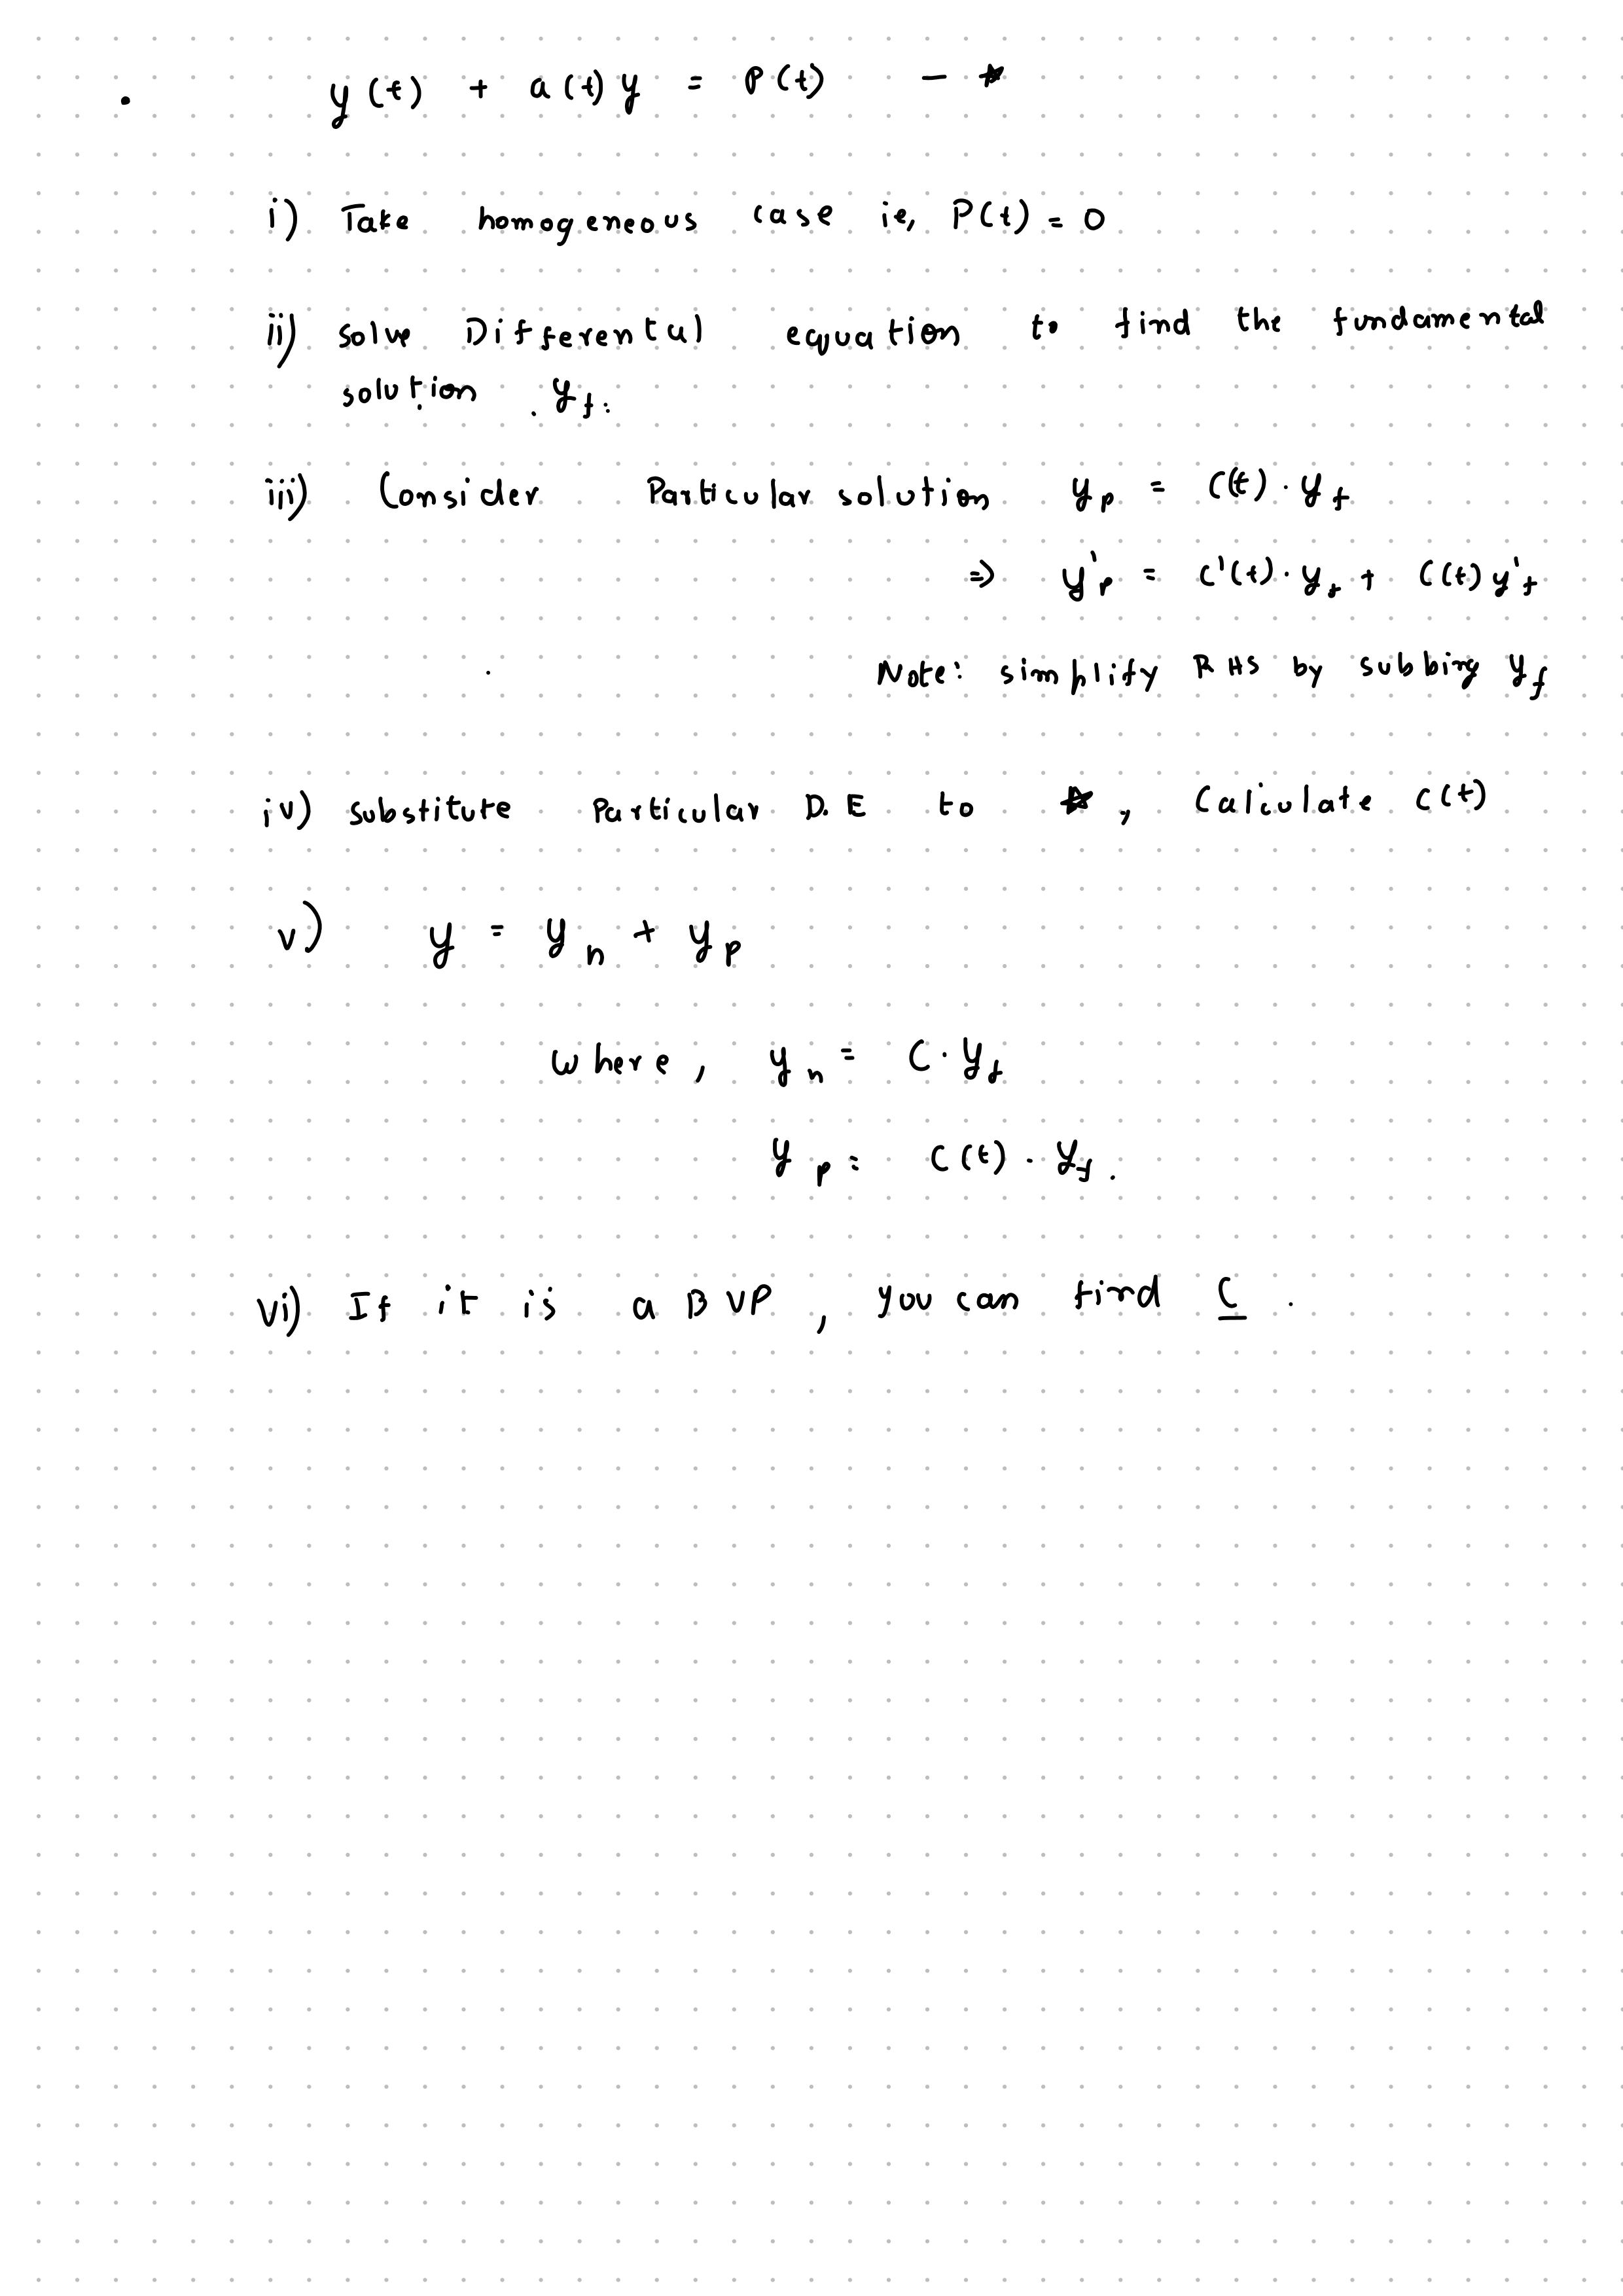 • y(t) + a(t)y = P(t) - ★
i) Take homogeneous case ie, P(t) = 0
ii) solve Differental equation to find the fundamental
solution y_f.
iii) Consider Particular solution y_p = C(t) · y_f
⇒ y'_p = C'(t) · y_f + C(t) y'_f
Note: simplify RHS by subbing y_f
iv) substitute Particular D.E to ★, Calculate C(t)
v) y = y_n + y_p
where, y_n = C · y_f
y_p = C(t) · y_f.
vi) If it is a BVP, you can find C.